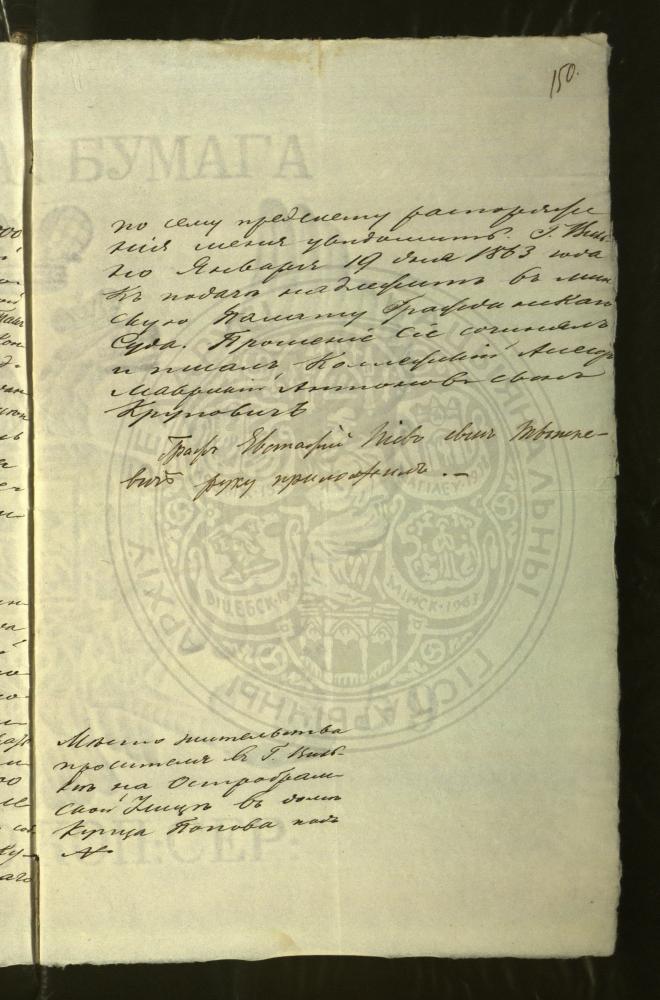 150.
БУМАГА
по сему предмету распоряже
нія меня увѣдомить. Г. Виль
но Января 19 дня 1863 года
Къ подачѣ надлежитъ въ Мин
скую Палату Гражданскаго
Суда. Прошеніе сіе сочинялъ
и писалъ Коллежскій Асесоръ
Маврикій Антоновъ сынъ
Круповичъ
Графъ Евстафій сынъ Тышке-
вичъ руку приложилъ. —
Мѣсто жительства
просителя въ Г. Виль
нѣ на Остробрам
ской Улицѣ въ домѣ
Купца Попова подъ
№
АРХІЎ
ГІСТАРЫЧНЫ
ВІЦЕБСК
МІНСК
СЕР: